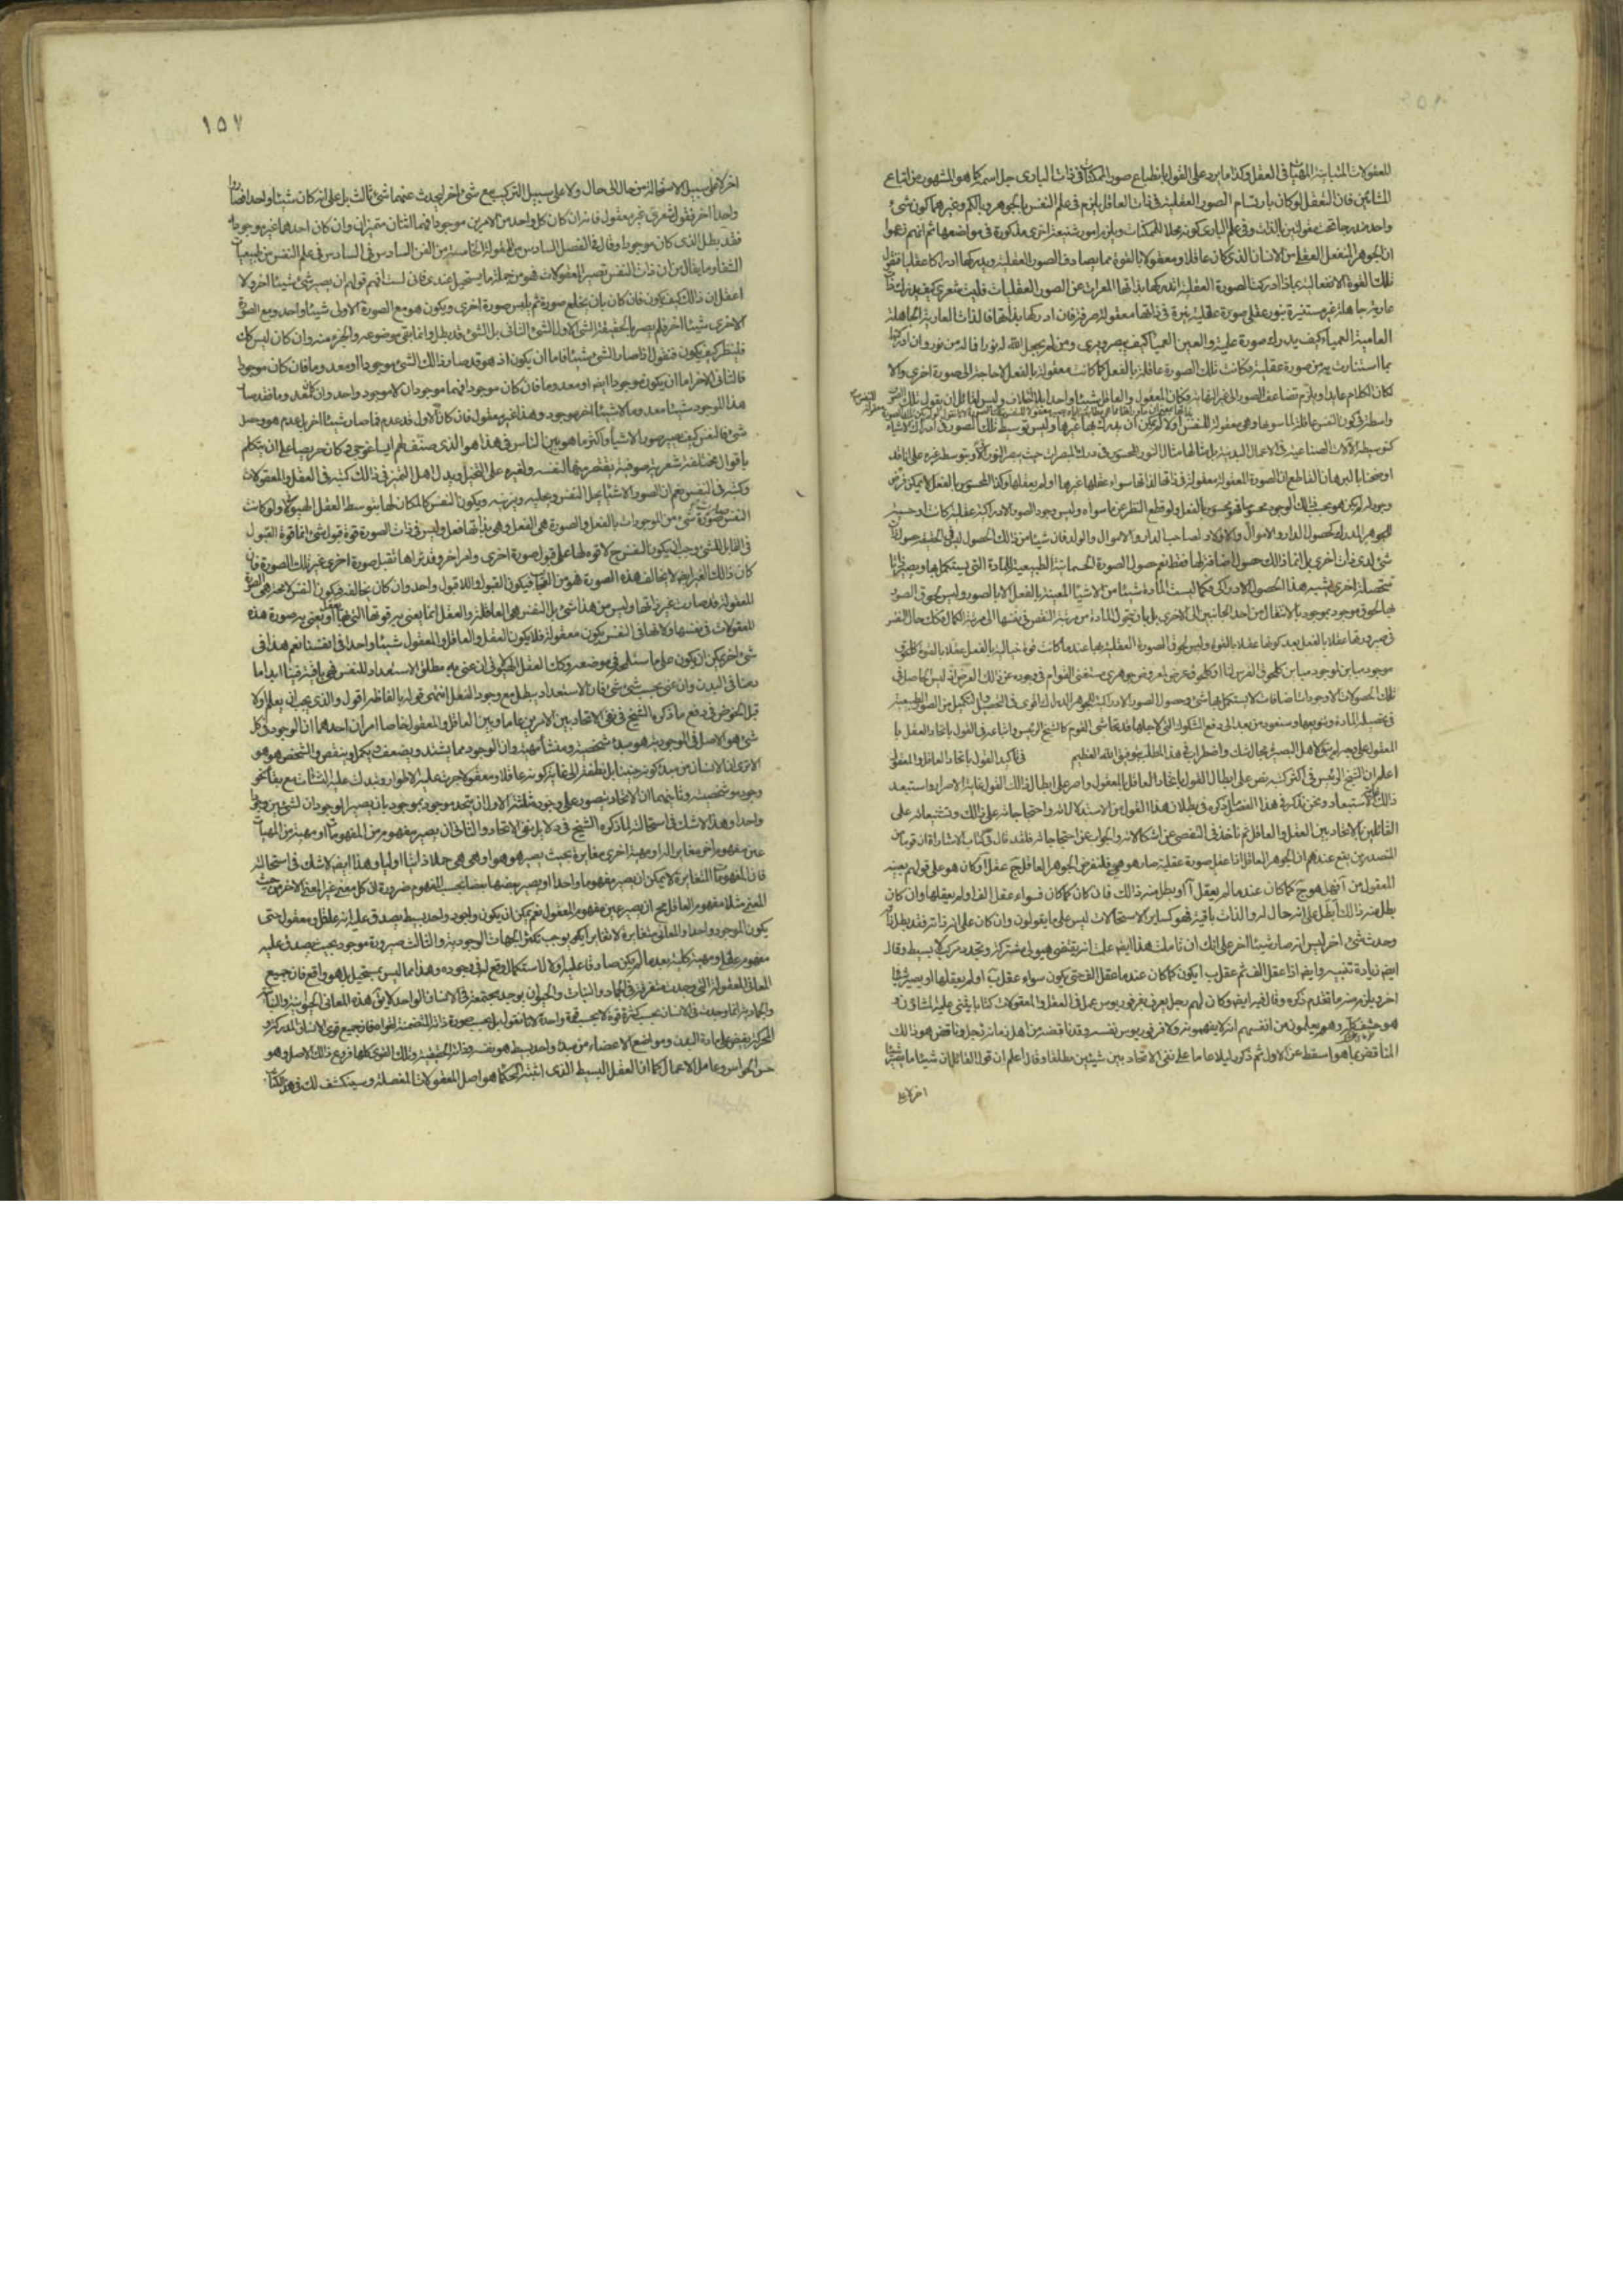 للمعقولات المتباينة المهيات فى العقل وكذا ما يرد على القول بانطباع صور الممكنات فى ذات البارى جل اسمه كما هو المشهور من اتباع
المشائين فان التعقل لو كان بارتسام الصور العقلية فى ذات العاقل يلزم فى علم النفس بالجوهر وبالكم وغيرهما كون شئ
واحد مندرجا تحت مقولتين بالذات وفى علم البارى كونه محلا للممكنات ويلزم امور شنيعة اخرى مذكورة فى مواضعها ثم انهم زعموا
ان الجوهر المنفعل العقلى من الانسان الذى كان عاقلا ومعقولا بالقوة مما يصادف الصور العقلية ويدركها ادراكا عقليا فنقول
تلك القوة الانفعالية بماذا ادركت الصورة العقلية اتدركها بذاتها المعراة عن الصور العقليات فليت شعرى كيف يدرك ذات
عارية جاهلة غير مستنيرة بنور عقلى صورة عقلية نيرة فى ذاتها معقولة صرفة فان ادركها بذاتها فالذات العارية الجاهلة
العامية العمياء كيف يدرك صورة علمية والعين العمياء كيف يبصر ويرى ومن لم يجعل الله له نورا فما له من نور وان ادركتها
بما استنارت به من صورة عقلية فكانت تلك الصورة عاقلة بالفعل كما كانت معقولة بالفعل بلا حاجة الى صورة اخرى والا
لكان الكلام عايدا ويلزم تضاعف الصور الى غير النهاية فكان المعقول والعاقل شيئا واحدا بلا اختلاف وليس لقائل ان يقول تلك الصورة
واسطة فى كون النفس عاقلة لما سواها وهى معقولة للنفس
كتوسيط الآلات الصناعية فى الاعمال البدنية بل مثالها مثال النور المحسوس فى درك المبصرات حيث يبصر النور اولا وبتوسطه غيره على انا قد
اوضحنا بالبرهان القاطع ان الصورة المعقولة معقولة فى ذاتها لذاتها سواء عقلها غيرها او لم يعقلها وكذا المحسوس بالفعل لا يمكن فرض
وجود له لم يكن هو بحسب ذلك الوجود محسوسا فهو محسوس بالفعل ولو قطع النظر عن ما سواه وليس وجود الصور الادراكية عقلية كانت او حسية
للجوهر المدرك كحصول الدار والاموال والاولاد لصاحب الدار والاموال والولد فان شيئا من ذلك الحصول ليس فى الحقيقة حصولا لذات
شئ لدى ذات اخرى بل انما ذلك حصول اضافة لها فقط نعم حصول الصورة الجسمانية الطبيعية للمادة التى يستكمل بها ويصير ذاتا
متحصلة اخرى يشبه هذا الحصول الادراكى فكما ليست المادة شيئا من الاشياء المعينة بالفعل الا بالصور وليس لحوق الصور
بها لحوق موجود بموجود بالانتقال من احد الجانبين الى الاخرى بل بان يتحول المادة من مرتبة النقص فى نفسها الى مرتبة الكمال فكذلك حال النفس
فى صيرورتها عقلا بالفعل بعد كونها عقلا بالقوة وليس لحوق الصورة العقلية بها عندما كانت قوة خيالية بالفعل عقلا بالقوة كلحوق
موجود مباين لموجود مباين كلحوق الفرس لنا او كلحوق عرض لمعروض جوهرى مستغنى القوام فى وجوده عن ذلك العرض اذ ليس الحاصل فى
تلك الحصولات الا وجودات اضافات لا يستكمل بها شئ وحصول الصور الادراكية للجوهر الدراك اقوى فى التحصيل والتكميل من الصور الطبيعية
فى تحصيل المادة وتنويعها وسنعود من بعد الى دفع الشكوك التى لاجلها قد تحاشى القوم كالشيخ الرئيس واتباعه فى القول باتحاد العقل با
المعقول على وجه لم يبق لاهل البصيرة مجال شك واضطراب فى هذا المطلب بتوفيق الله العظيم فى تاكيد القول باتحاد العاقل والمعقول
اعلم ان الشيخ الرئيس فى اكثر كتبه نص على ابطال القول باتحاد العاقل بالمعقول واصر على ابطال ذلك القول غاية الاصرار واستبعد
ذلك غاية الاستبعاد ونحن نذكر فى هذا الفصل ما ذكره فى بطلان هذا القول من الاستدلالات واحتجاجاته على ذلك وتشنيعاته على
القائلين بالاتحاد بين العقل والعاقل ثم ناخذ فى التفصى عن اشكالاته والجواب عن احتجاجاته فلقد قال فى كتاب الاشارات ان قوما من
المتصدرين يقع عندهم ان الجوهر العاقل اذا عقل صورة عقلية صار هو هى فلنفرض الجوهر العاقل ج عقل آ وكان هو على قولهم بعينه
المعقول من آ فهل هو ح كما كان عندما لم يعقل آ او بطل منه ذلك فان كان كما كان فسواء عقل الفا او لم يعقلها وان كان
بطل منه ذلك ابطل على انه حال له والذات باقية فهو كساير الاستحالات ليس على ما يقولون وان كان على انه ذاته فقد بطل ذاته
وحدث شئ اخر ليس انه صار شيئا اخر على انك ان تاملت هذا ايضا علمت انه يقتضى هيولى مشتركة وتجدد مركب لا بسيط وقال
ايضا زيادة تنبيه وايضا اذا عقل الف ثم عقل ب ايكون كما كان عندما عقل الف حتى يكون سواء عقل ب او لم يعقلها او يصير شيئا
اخر ويلزم منه ما تقدم ذكره وقال فيه ايضا وكان لهم رجل يعرف بفرفوريوس عمل فى العقل والمعقولات كتابا يثنى عليه المشاؤن و
هو حشف كله وهم يعلمون من انفسهم انهم لا يفهمونه ولا فرفوريوس نفسه وقد ناقضه من اهل زمانه رجل وناقض هو ذلك
المناقض بما هو اسقط عن الاول ثم ذكر دليلا عاما على نفى الاتحاد بين شيئين مطلقا وقال اعلم ان قول القائل ان شيئا ما يصير شيئا
اخر لا على
١٥٧
اخر لا على سبيل الاستحالة من حال الى حال ولا على سبيل التركيب مع شئ اخر ليحدث عنهما شئ ثالث بل على انه كان شيئا واحدا فصار
واحدا اخر فقول شعرى غير معقول فانه ان كان كل واحد من الامرين موجودا فهما اثنان متميزان وان كان احدهما غير موجود
فقد بطل الذى كان موجودا وقال فى الفصل السادس من المقالة الخامسة من الفن السادس فى علم النفس من طبيعيات
الشفا وما يقال من ان ذات النفس تصير المعقولات فهو من جملة ما يستحيل عندى فانى لست افهم قولهم ان يصير شئ شيئا اخر ولا
اعقل ان ذلك كيف يكون فان كان بان يخلع صورة ثم يلبس صورة اخرى ويكون هو مع الصورة الاولى شيئا واحدا ومع الصورة
الاخرى شيئا اخر فلم يصر بالحقيقة الشئ الاول الشئ الثانى بل الشئ قد بطل وانما بقى موضوعه والجزء منه وان كان ليس كذلك
فلينظر كيف يكون فنقول اذا صار الشئ شيئا فاما ان يكون اذ هو قد صار ذلك الشئ موجودا او معدوما فان كان موجودا
فالثانى الاخر اما ان يكون موجودا ايضا او معدوما فان كان موجودا فهما موجودان لا موجود واحد وان كان معدوما فقد صار
هذا الموجود شيئا معدوما لا شيئا اخر موجود وهذا غير معقول فان كان الاول قد عدم فما صار شيئا اخر بل عدم هو وحصل
شئ فالنفس كيف يصير صور الاشياء واكثر ما هوس الناس فى هذا هو الذى صنف لهم ايساغوجى وكان حريصا على ان يتكلم
باقوال مخيلة شعرية صوفية يقتصر منها لنفسه ولغيره على التخيل ويدل اهل التميز فى ذلك كتبه فى العقل والمعقولات
وكتبه فى النفس نعم ان الصور الاشياء يحل النفس ويحليه ويزينه ويكون النفس كالمكان لها بتوسط العقل الهيولانى ولو كانت
النفس صورة شئ من الموجودات بالفعل والصورة هى الفعل وهى بذاتها فعل وليس فى ذات الصورة قوة قبول شئ انما قوة القبول
فى القابل للشئ وجب ان يكون النفس ح لا قوة لها على قبول صورة اخرى وامر اخر وقد نراها تقبل صورة اخرى غير تلك الصورة فان
كان ذلك الغير ايضا لا يخالف هذه الصورة فهو من العجايب فيكون القبول واللاقبول واحدا وان كان يخالفه فيكون النفس لا محالة هى الصورة
المعقولة قد صارت غير ذاتها وليس من هذا شئ بل النفس هى العاقلة والعقل انما يعنى به قوتها التى بها تعقل او يعنى به صورة هذه
المعقولات فى نفسها ولانها فى النفس يكون معقولة فلا يكون العقل والعاقل والمعقول شيئا واحدا فى انفسنا نعم هذا فى
شئ اخر يمكن ان يكون على ما سنلمحه فى موضعه وكذلك العقل الهيولانى ان عنى به مطلق الاستعداد للنفس فهى باقية فينا ابدا ما
دمنا فى البدن وان عنى بحسب شئ شئ فان الاستعداد يبطل مع وجود الفعل انتهى قوله بالفاظه اقول والذى يجب ان يعلم اولا
قبل الخوض فى دفع ما ذكره الشيخ فى نفى الاتحاد بين الامرين عاما وبين العاقل والمعقول خاصا امران احدهما ان الوجود فى كل
شئ هو الاصل فى الموجودية هو مبدء شخصيته ومنشأ مهيته وان الوجود مما يشتد ويضعف ويكمل وينقص والشخص هو هو
الا ترى ان الانسان من مبدء كونه جنينا بل نطفة الى غاية كونه عاقلا ومعقولا جرت عليه الاطوار وتبدلت عليه النشآت مع بقاء نحو
وجوده وشخصيته وثانيهما ان الاتحاد يتصور على وجوه ثلثة الاول ان يتحد موجود بموجود بان يصير الوجودان لشيئين وجودا
واحدا وهذا لا شك فى استحالته لما ذكره الشيخ فى دلايل نفى الاتحاد والثانى ان يصير مفهوم من المفهومات او مهية من المهيات
عين مفهوم اخر مغاير له او مهية اخرى مغايرة بحيث يصير هو هو او هى هى حملا ذاتيا اوليا وهذا ايضا لا شك فى استحالته
فان المفهومات المتغايرة لا يمكن ان يصير مفهوما واحدا او يصير بعضها بعضا بحسب المفهوم ضرورة ان كل معنى غير المعنى الاخر من حيث
المعنى مثلا مفهوم العاقل مح ان يصير عين مفهوم المعقول نعم يمكن ان يكون وجود واحد بسيط يصدق عليه انه عاقل ومعقول حتى
يكون الموجود واحدا والمعانى متغايرة لا تغايرا يوجب تكثر الجهات الوجودية والثالث صيرورة موجود بحيث يصدق عليه
مفهوم عقلى او مهية كلية بعدما لم يكن صادقا عليه اولا لاستكمال وقع له فى وجوده وهذا مما ليس بمستحيل بل هو واقع فان جميع
المعانى المعقولة التى وجدت متفرقة فى الجماد والنبات والحيوان يوجد مجتمعة فى الانسان الواحد لا يق هذه المعانى الحيوانية والنباتية
والجمادية انما وجدت فى الانسان بحسب كثرة قوة لا بحسب قوة واحدة لانا نقول بل بحسب صورة ذاته المتضمنة لقواه فان جميع قوى الانسان المدركة و
المحركة يفيض على مادة البدن ومواضع الاعضاء من مبدء واحد بسيط هو نفسه وذاته الحقيقية وتلك القوى كلها فروع ذلك الاصل وهو
حس الحواس وعامل الاعمال كما ان العقل البسيط الذى اثبته الحكما هو اصل المعقولات المفصلة وسينكشف لك فى هذا الكتاب